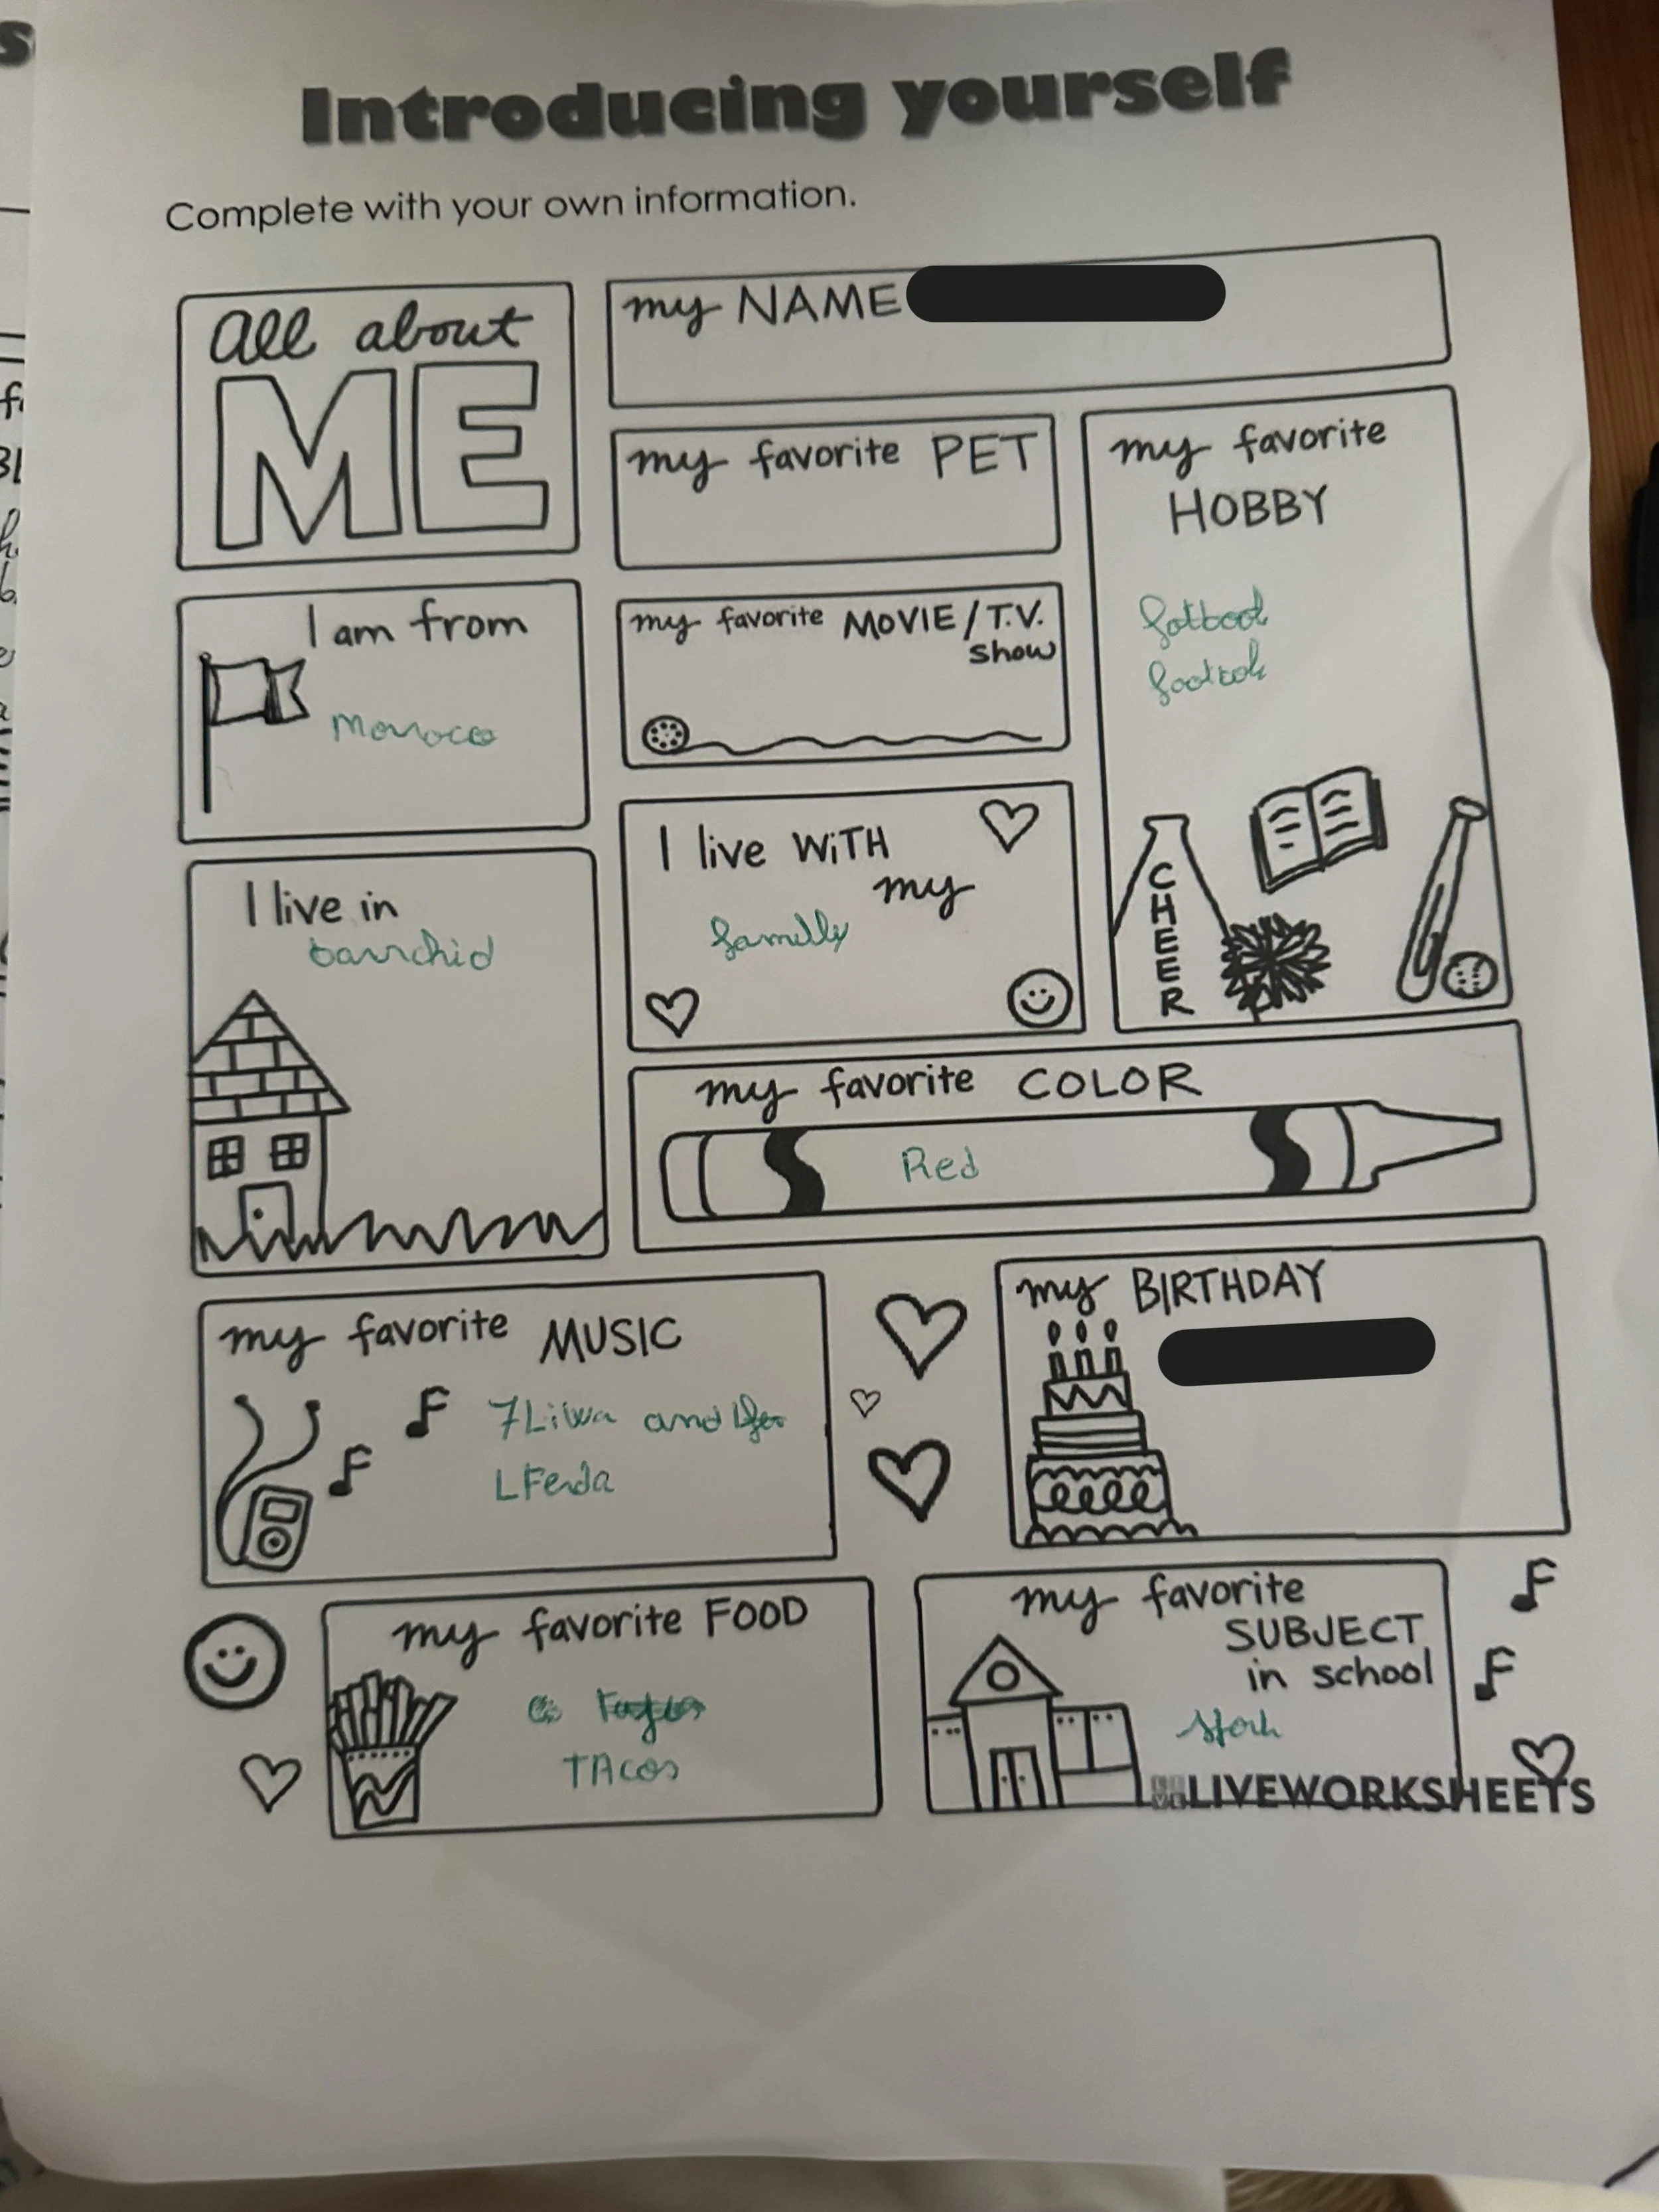 Introducing yourself
Complete with your own information.
all about
ME
my NAME
my favorite PET
my favorite
HOBBY
fotbool
footbol
I am from
Morroco
my favorite MOVIE / T.V.
show
I live WiTH
my
familly
I live in
barrchid
CHEER
my favorite COLOR
Red
my favorite MUSIC
7Liwa and
LFerda
my BIRTHDAY
my favorite FOOD
TAcos
my favorite
SUBJECT
in school
LIVEWORKSHEETS